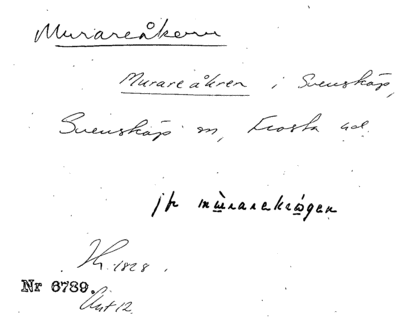 Murareåkern
Murareåkren i Svenskóp,
Svenskóp sn, Frosta hd.
jfr mùrarekrògen
1828.
Nr 6789.
12.